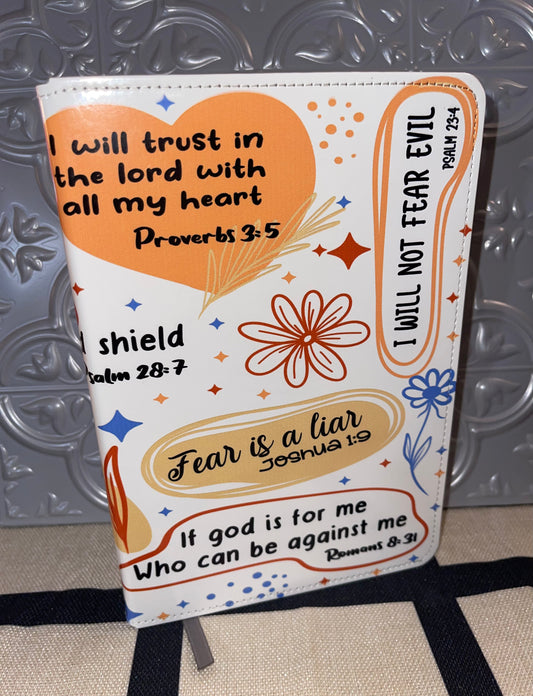 I will trust in
the lord with
all my heart
Proverbs 3:5
I WILL NOT FEAR EVIL
PSALM 23:4
shield
Psalm 28:7
Fear is a liar
Joshua 1:9
If god is for me
Who can be against me
Romans 8:31